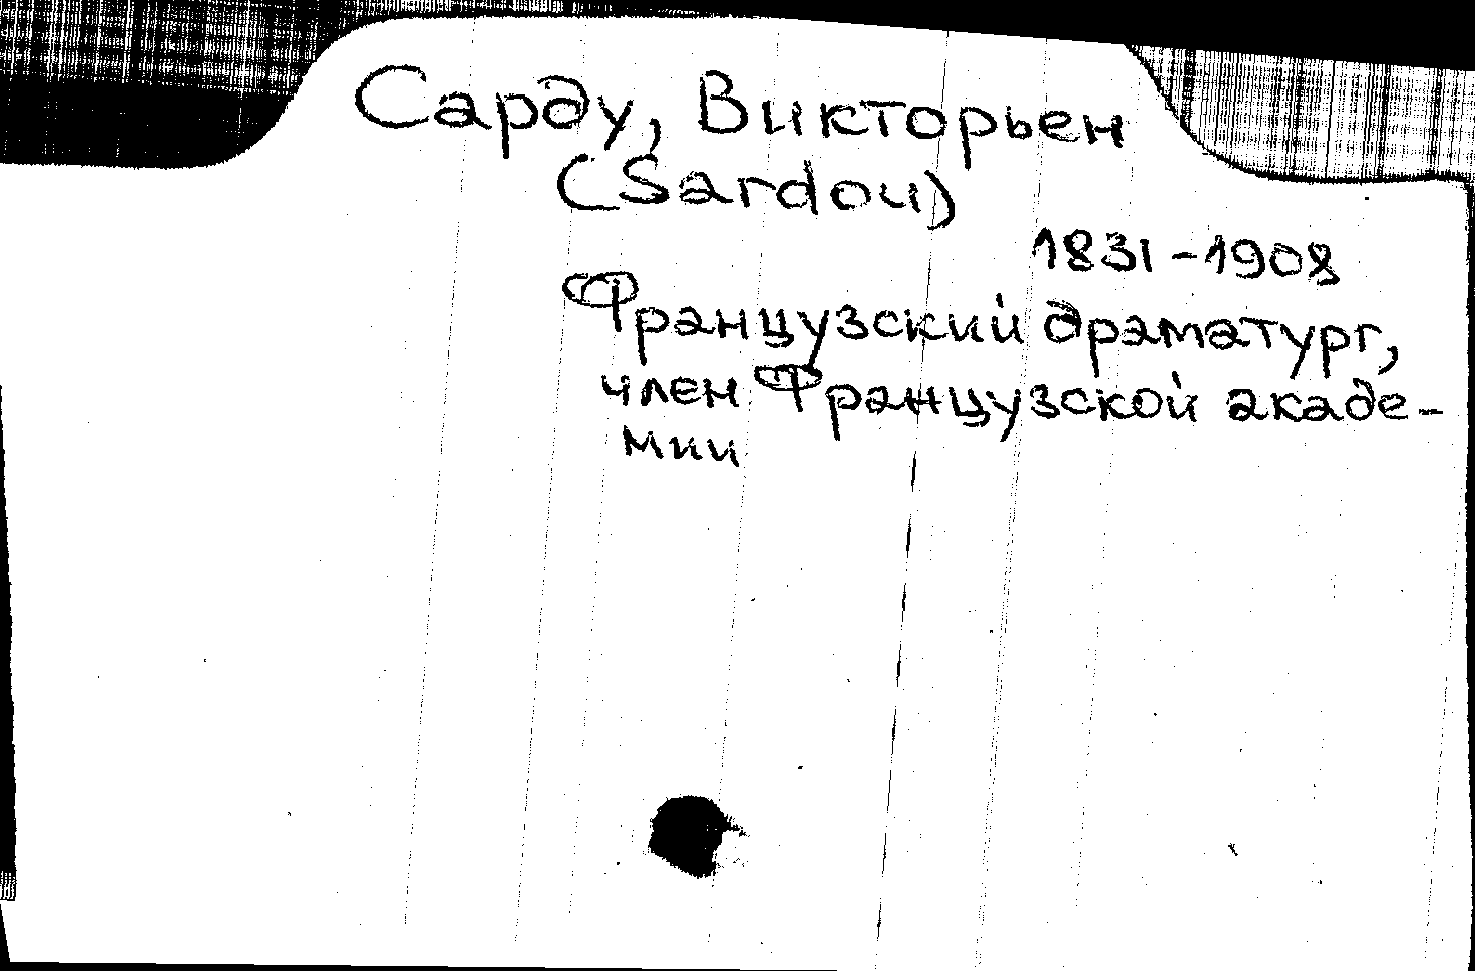 Сарду, Викторьен
(Sardou)
1831-1908
Французский драматург,
член Французской акаде-
мии